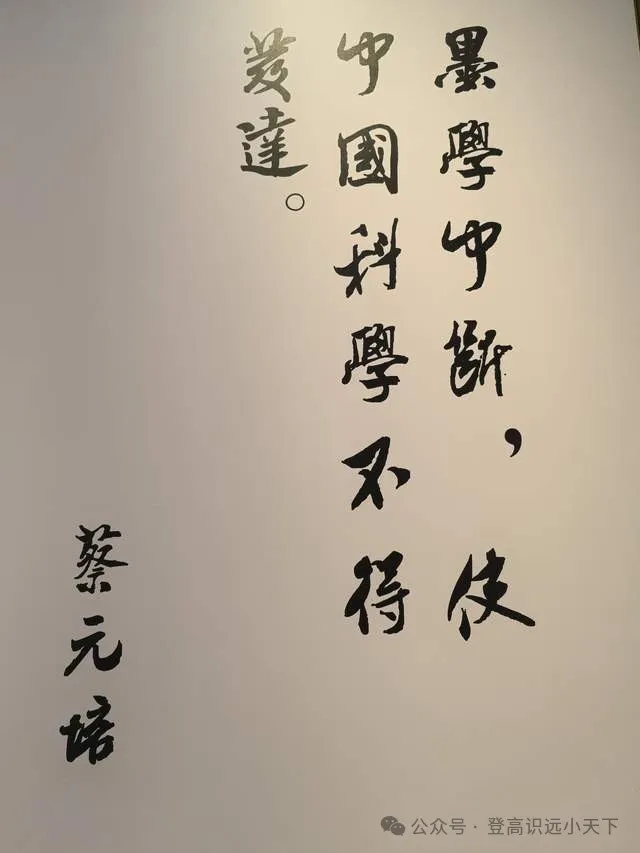 墨學中斷，使
中國科學不得
發達。
蔡元培
公众号·登高识远小天下